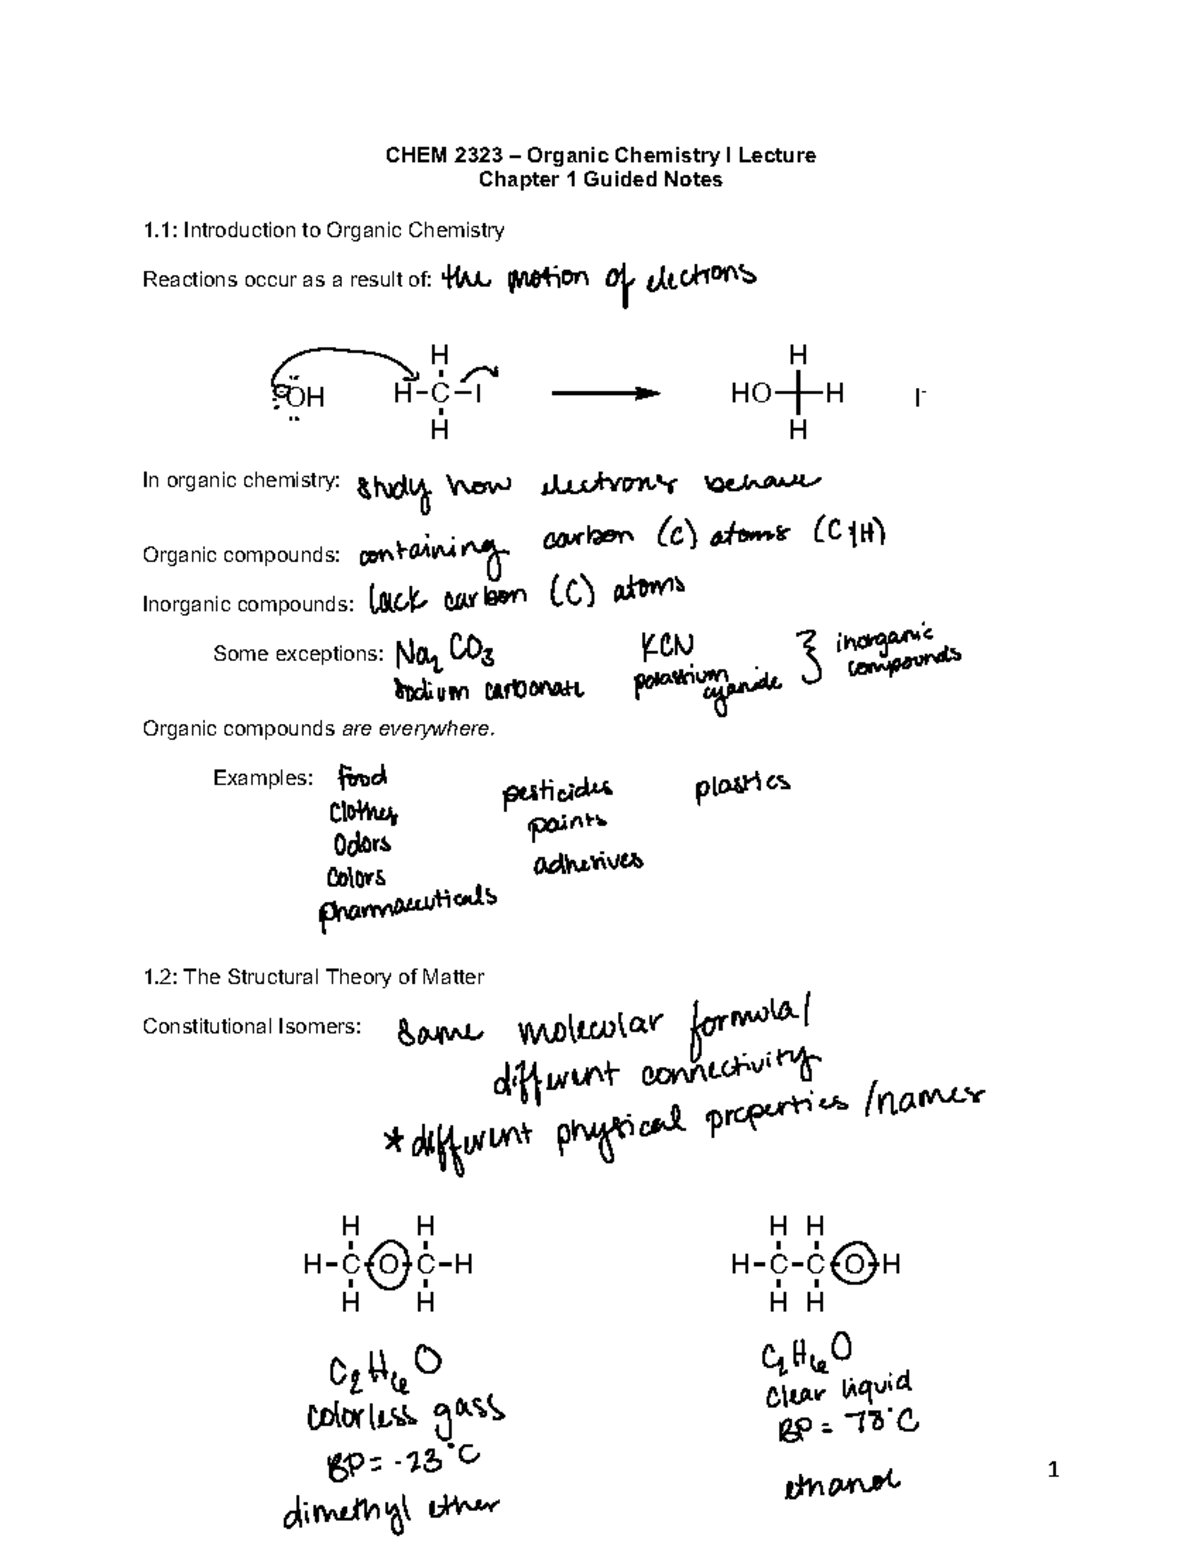 CHEM 2323 – Organic Chemistry I Lecture
Chapter 1 Guided Notes
1.1: Introduction to Organic Chemistry
Reactions occur as a result of: the motion of electrons
H H
⊖OH H-C-I HO H I-
H H
In organic chemistry: study how electrons behave
Organic compounds: containing carbon (C) atoms (C+H)
Inorganic compounds: lack carbon (C) atoms
Some exceptions: Na2CO3 KCN } inorganic
sodium carbonate potassium cyanide compounds
Organic compounds are everywhere.
Examples: food pesticides plastics
Clothes paints
Odors adhesives
Colors
pharmaceuticals
1.2: The Structural Theory of Matter
Constitutional Isomers: same molecular formula/
different connectivity
*different physical properties/names
H H H H
H-C-O-C-H H-C-C-O-H
H H H H
C2H6O C2H6O
colorless gass clear liquid
BP = -23°C BP = 78°C
dimethyl ether ethanol
1